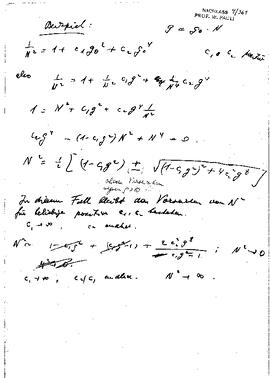 NACHLASS 4/361
PROF. W. PAULI
Beispiel: g = g₀·N
1/N² = 1 + c₁g₀² + c₂g₀⁴ c₁, c₂
also
1/N² = 1 + 1/N² c₁g² + 1/N⁴ c₂g⁴
1 = N² + c₁g² + c₂g⁴ 1/N²
c₂g⁴ - (1-c₁g²)N² + N⁴ = 0
N² = 1/2 [(1-c₁g²) ± √(1-c₁g²)² + 4c₂g⁴]
oberes Vorzeichen
wegen
In diesem Fall bleibt das Vorzeichen von N²
für beliebige positive c₁, c₂ bestehen.
c₁ → ∞, c₂ endlich.
N² ≈ 1-c₁g² + (c₁g²-1) + 2c₂g⁴/c₁g²-1; N² → 0
c₁ → ∞, c₂/c₁ endlich. N² → ∞.